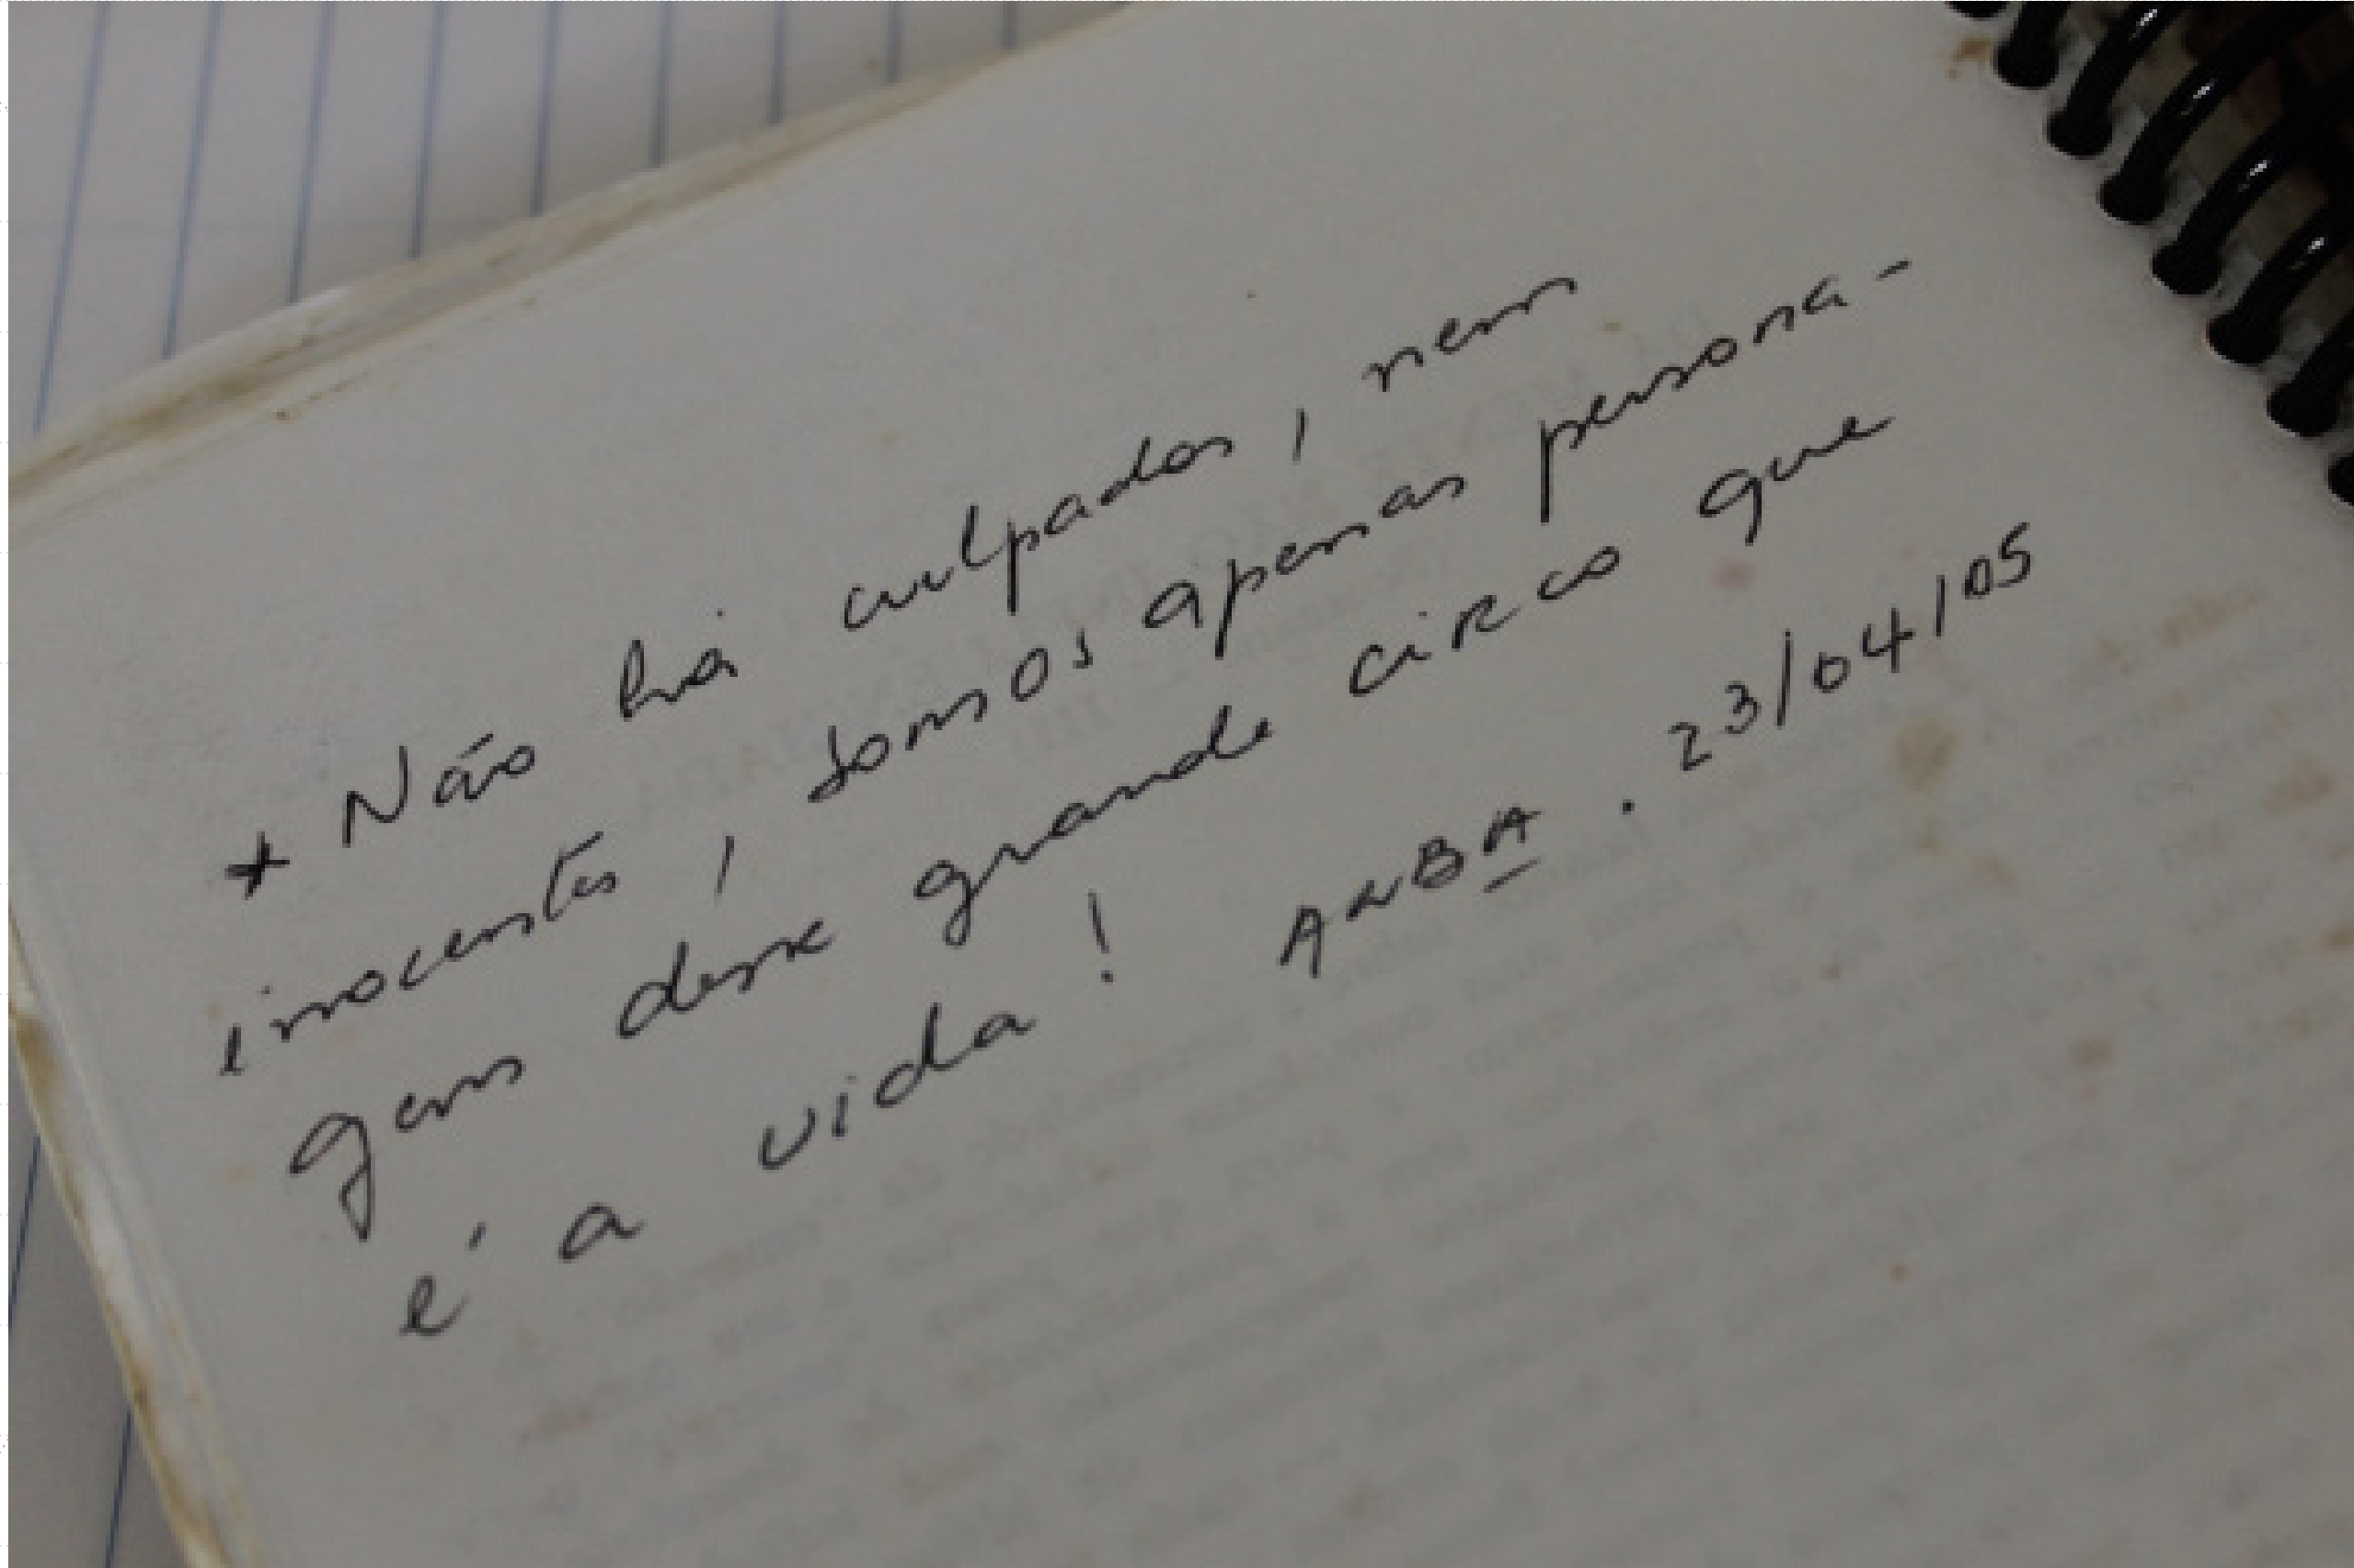 * Não há culpados, nem
inocentes, somos apenas persona-
gens desse grande circo que
é a vida! ANBA . 23/04/05